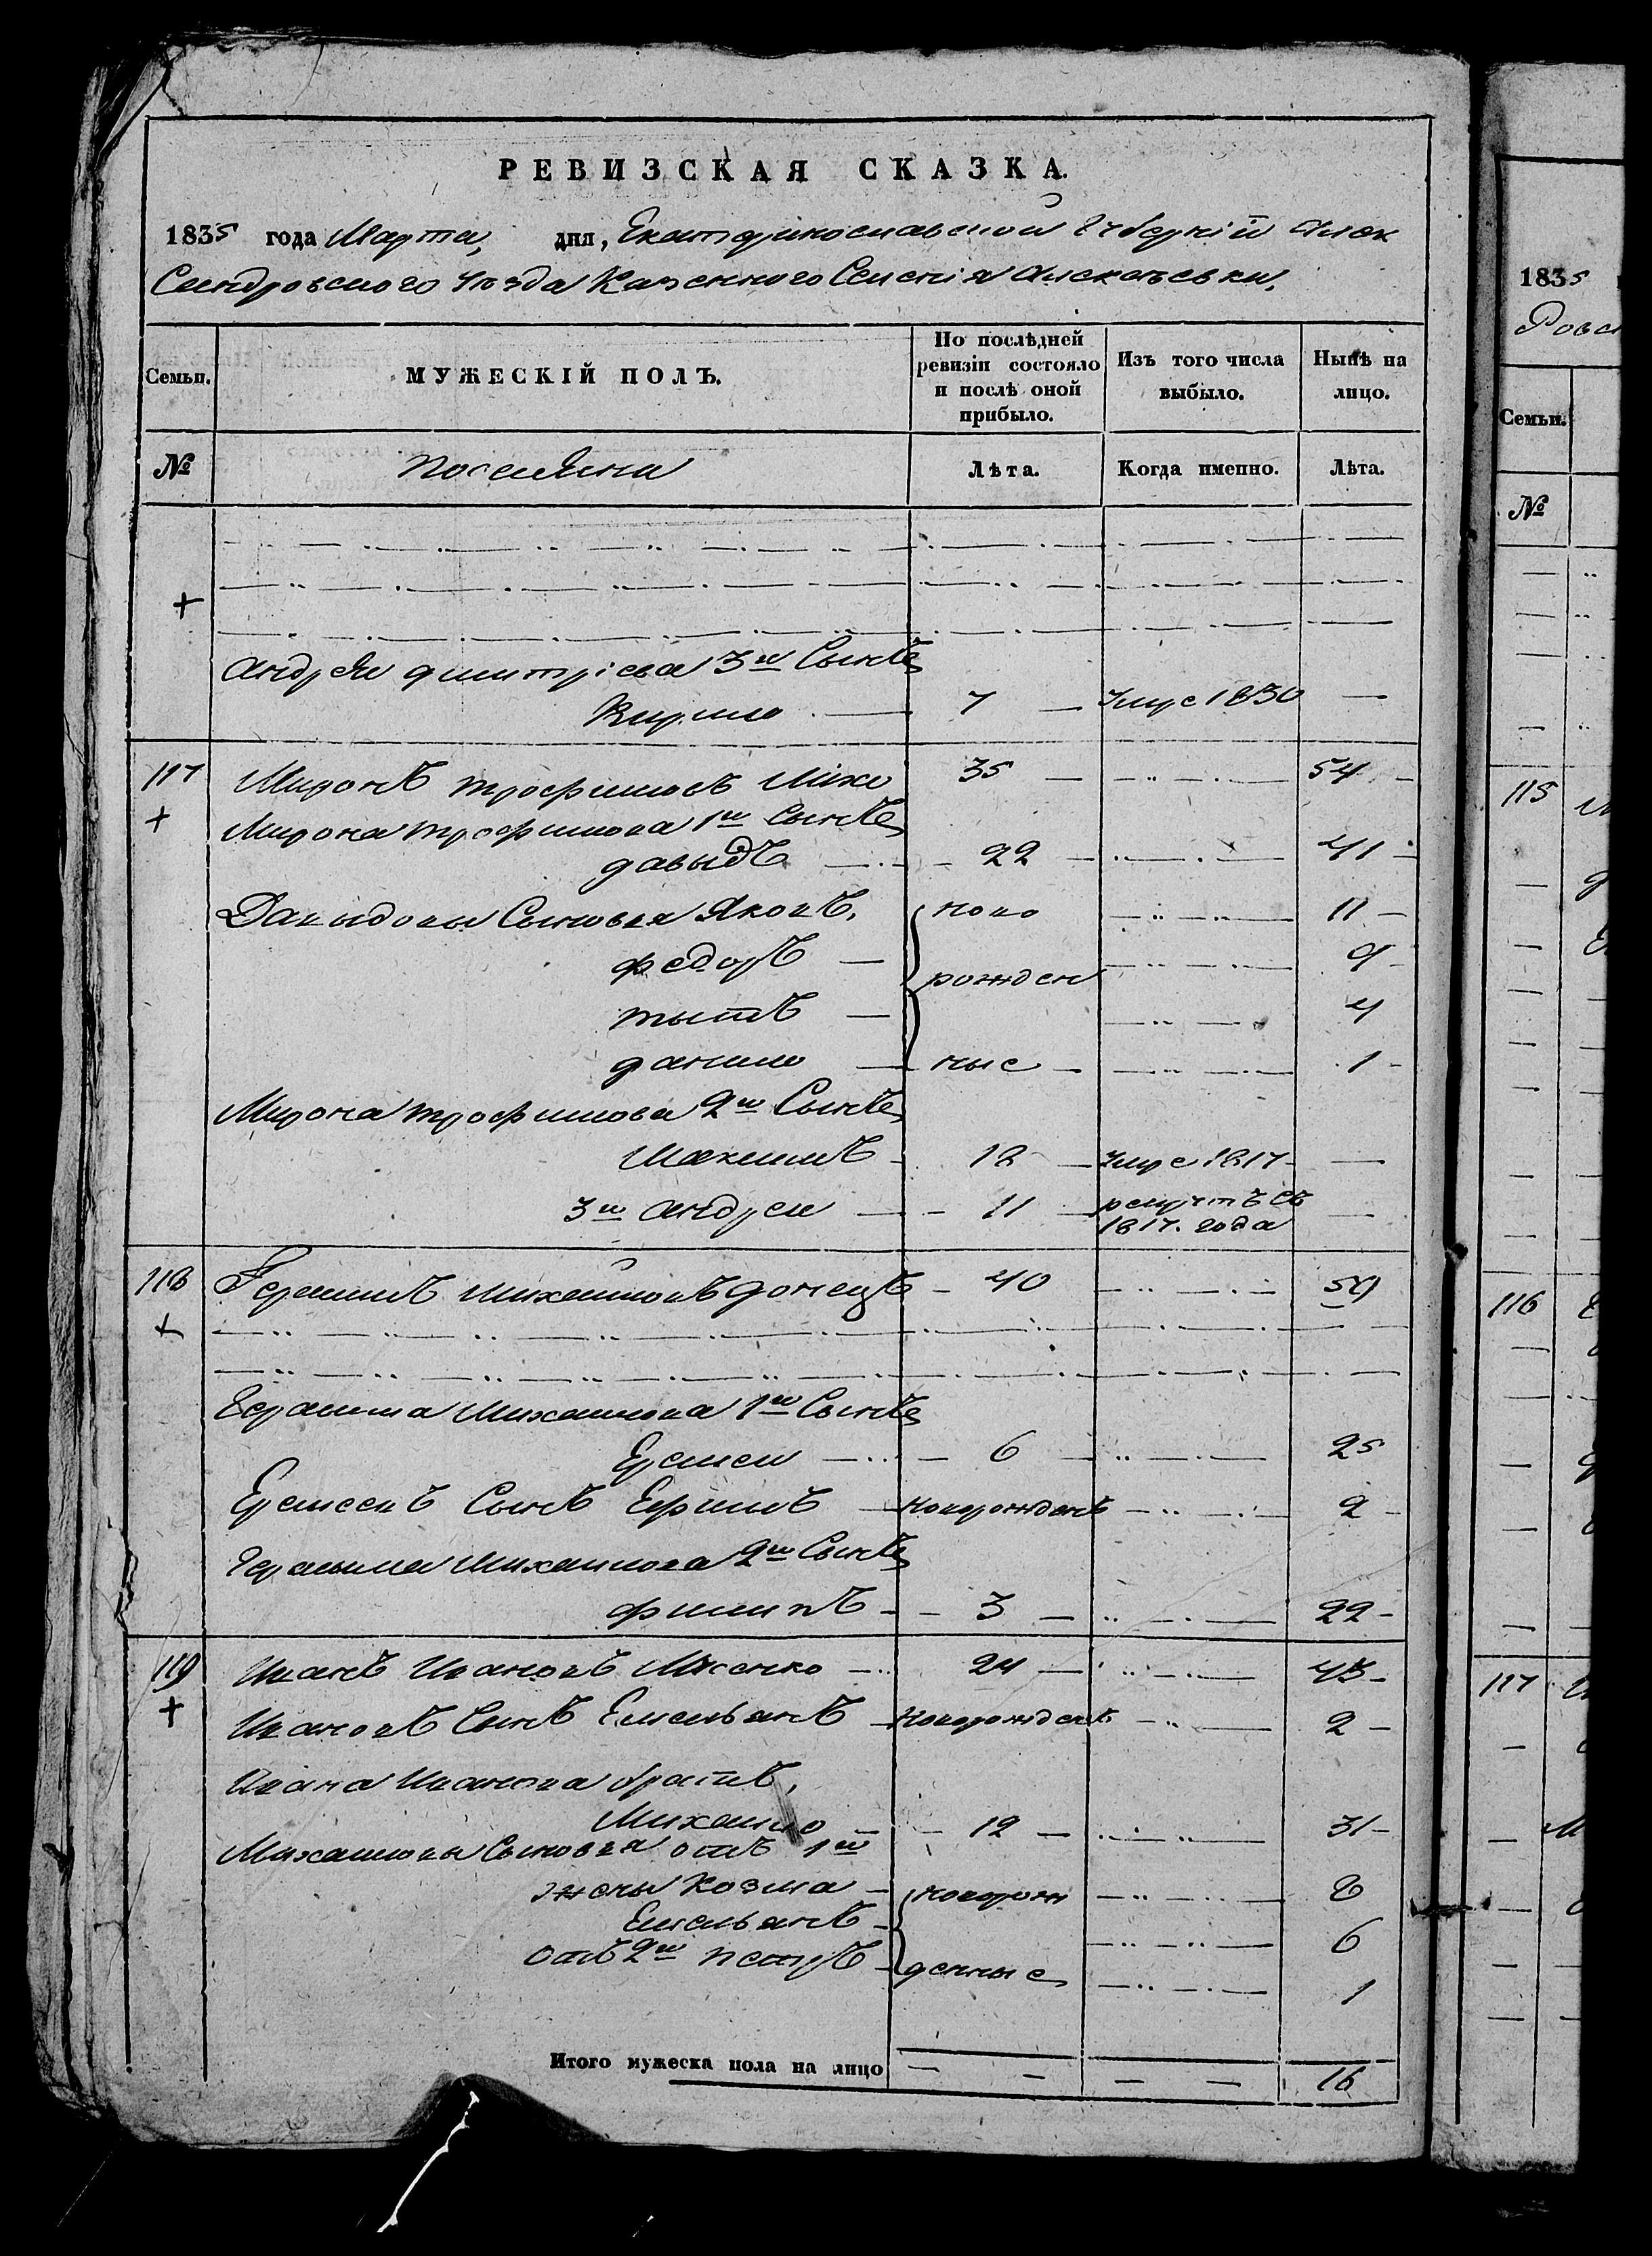 РЕВИЗСКАЯ СКАЗКА.
1835 года Марта, дня, Екатеринославской Губернiи Алек
Сандровского Уѣзда Казенного Селенiя Алексѣевки.
Семьи. МУЖЕСКІЙ ПОЛЪ. По послѣдней ревизіи состояло и послѣ оной прибыло. Изъ того числа выбыло. Нынѣ на лицо.
№ поселяни Лѣта. Когда именно. Лѣта.
+
андрея дмитрiева 3й Сынъ
Кирило 7 Умре 1830 —
117 Миронъ трофимовъ 35 54
+ Мирона трофимова 1й Сынъ
давыдъ 22 41
Давыдовы Сыновья Яковъ, ново 11
федоръ 9
рожден
тытъ 4
данило ные 1
Мирона трофимова 2й Сынъ
Максимъ 18 Умре 1817 —
3й андрей 11 рекрутъ съ —
1817. года
118 Герасимъ Михайловъ донецъ 40 59
+
Герасима Михайлова 1й Сынъ
Еремей 6 25
Еремеевъ Сынъ Ефимъ новорожденъ 2
Герасыма Михайлова 2й Сынъ
филипъ 3 22
119 Иванъ Ивановъ Лясенко 24 43
+ Ивановъ Сынъ Емельянъ Новорожденъ 2
Ивана Иванова братъ,
Михайло 12 31
Михайловы Сыновья отъ 1й
жены Козма новорож 8
Емельянъ 6
отъ 2й петръ денные 1
Итого мужеска пола на лицо — — — — 16
1835
Ровс
Семьи.
№
115
116
117